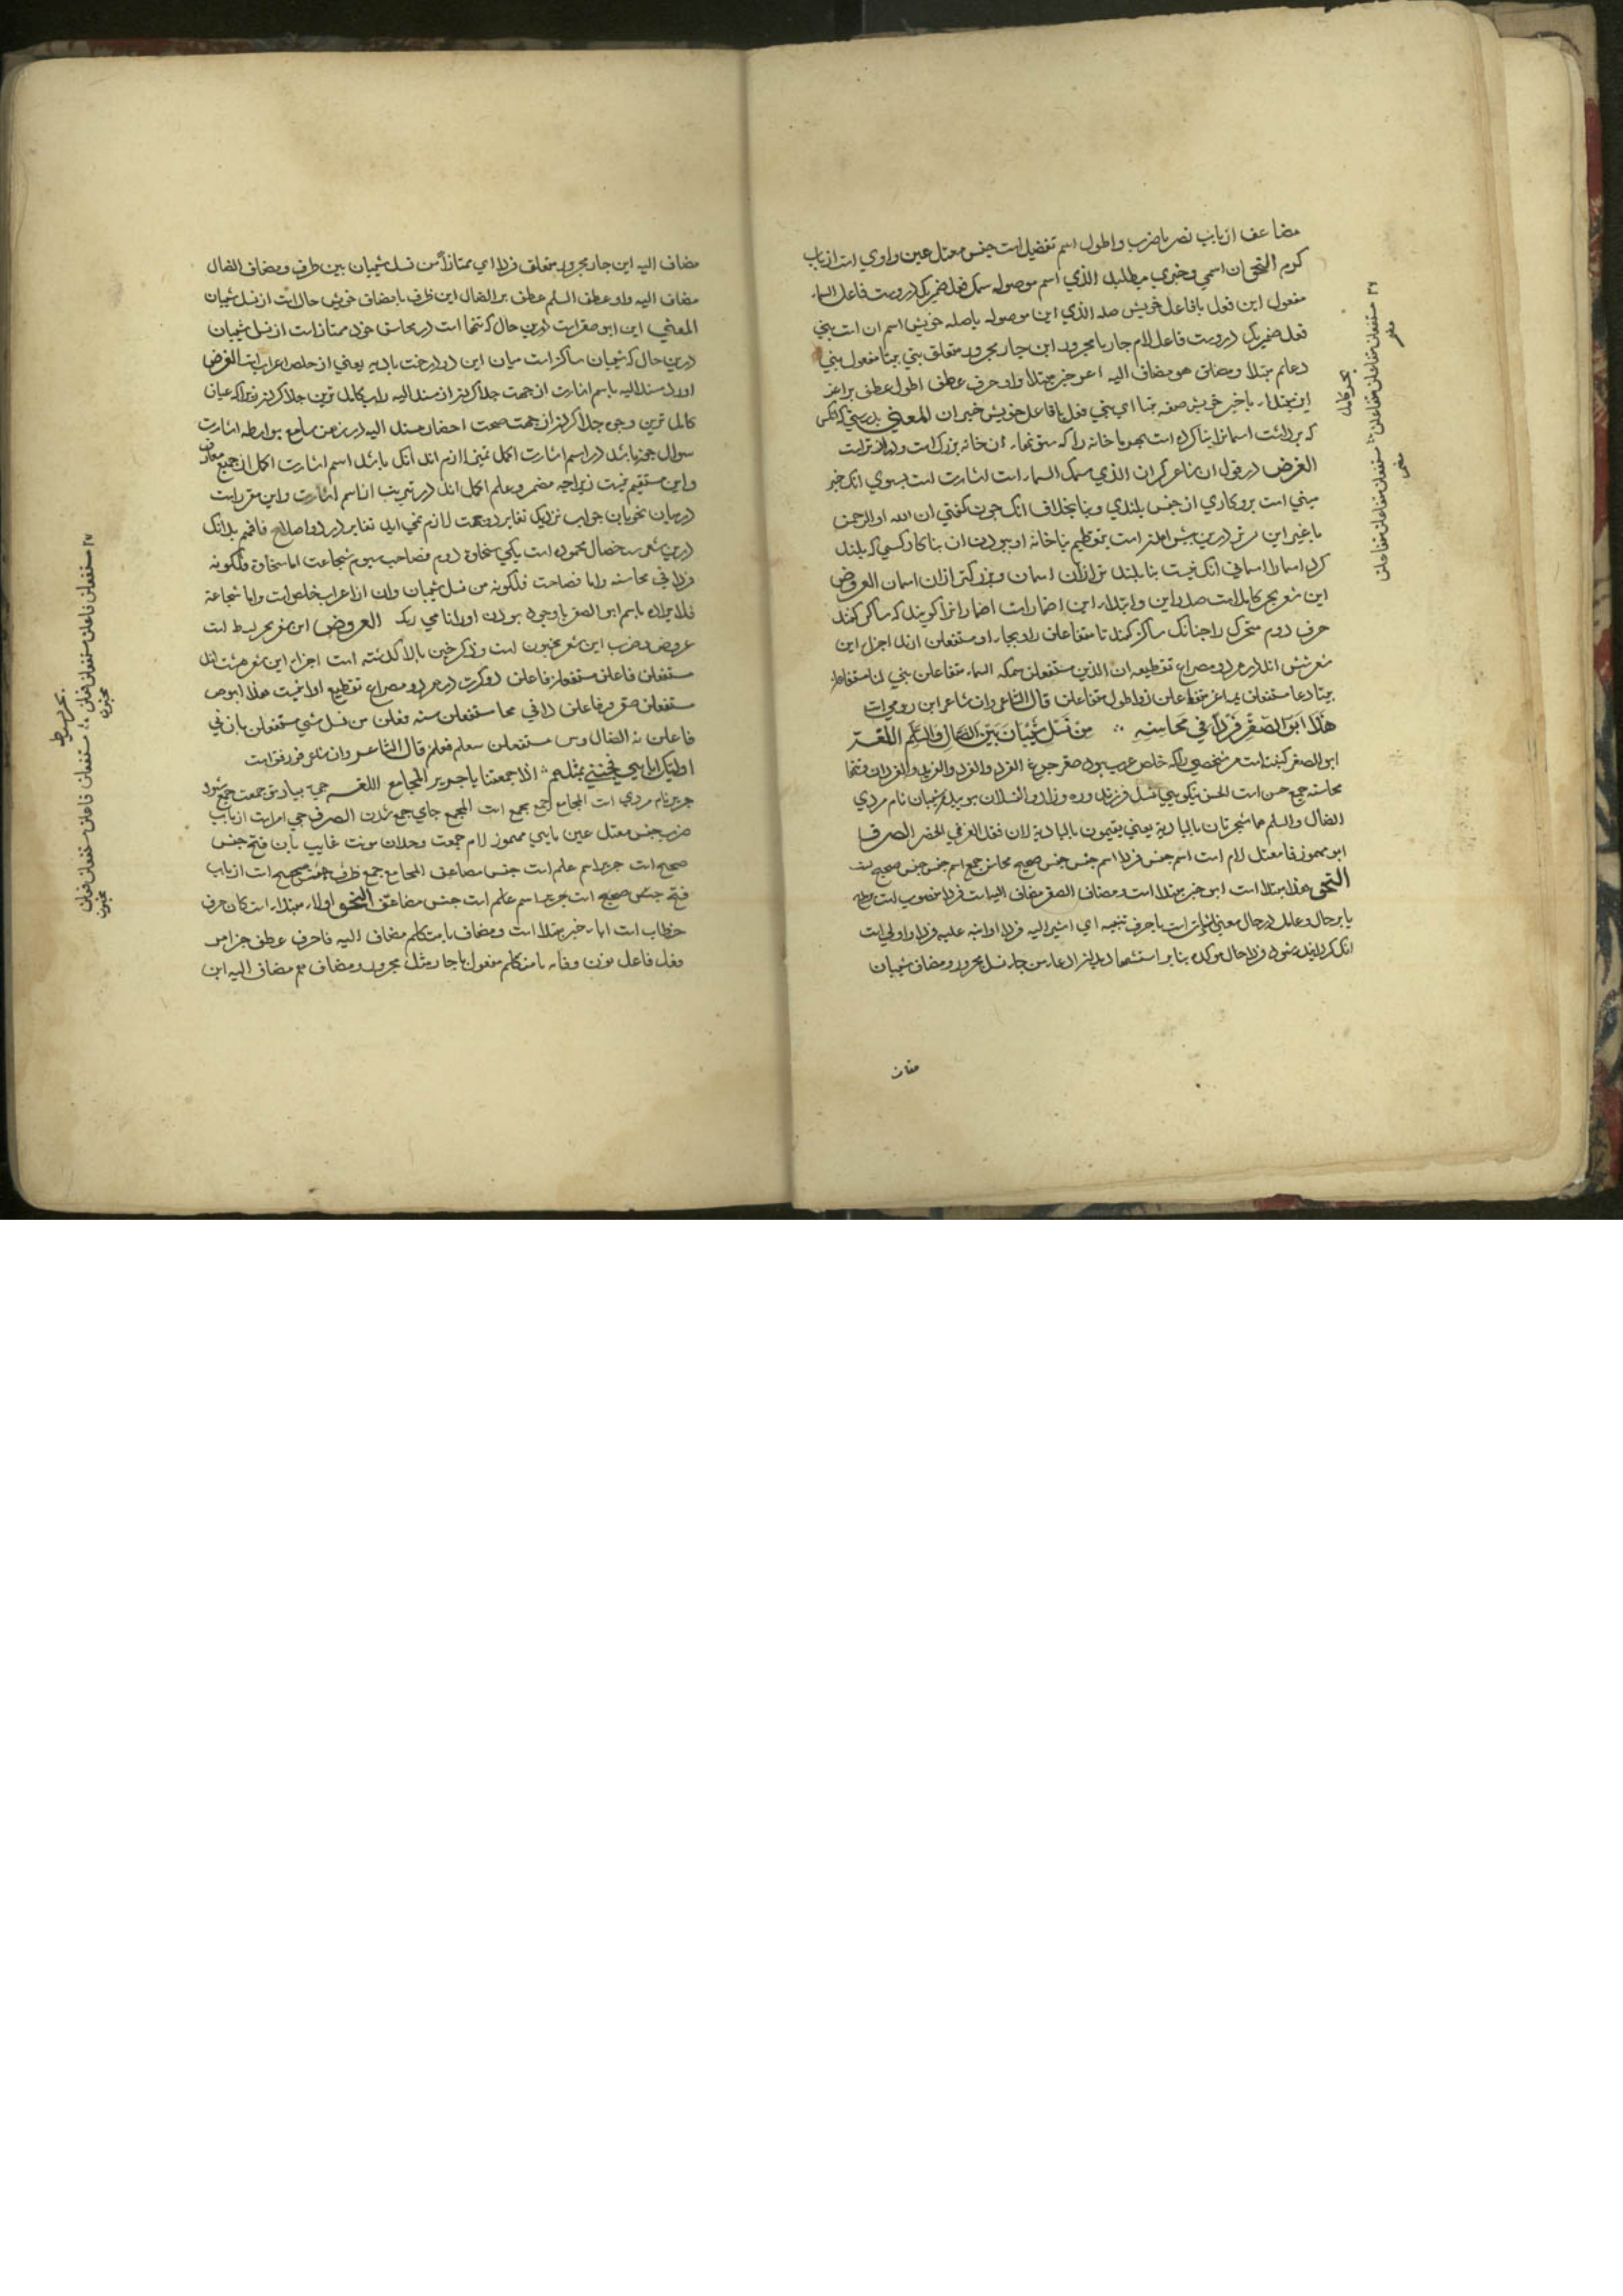 مضاعف از باب نصر یا ضرب و اطول اسم تفضیل است جنس معتل عین واوی است از باب
کرم النحو ان اسمی و خبری میطلبد الذی اسم موصول سمک فعل ضمیر که دروست فاعل السماء
مفعول این فعل با فاعل خویش صله الذی این موصول باصله خویش اسم ان است بنی
فعل ضمیر که دروست فاعل لام جار با مجرور این جار مجرور متعلق بنی بیتا مفعول بنی
دعائم مبتدا و مضاف هو مضاف الیه اعز خبر مبتدا واو حرف عطف اطول عطف بر اعز
این مبتدا با خبر خویش صفه بیتا ای بنی فعل با فاعل خویش خبر ان المعنی بدرستی که انکس
که برداشت اسمانرا بنا کرده است بهر ما خانه را که ستونهاء آن خانه بزرگ است و دراز تر است
الغرض در قول ان شاعر که ان الذی سمک السماء است اشارت است بسوی انک خبر
مبنی است برو کاری از جنس بلندی و بنا بخلاف انک چون کفتی ان الله او الرحمن
یا غیر این در درین بیش است بتعظیم بنا خانه او بودن ان بنا کار کسی که بلند
کرد اسمان را اسمانی انک نیست بنا بلند تر ازان اسمان و بزرکتر ازان اسمان العروض
این شعر بحر کامل است صدر این و ابتداء این اضمار است اضمار انرا کویند که ساکن کنند
حرف دوم متحرک را چنانک ساکن کنند تا متفاعلن را و بجاء او مستفعلن ارند اجزاء این
شعر شش اند در هر دو مصراع تقطیعه ان الذی مستفعلن سمک السماء متفاعلن بنی لنا متفاعلن
بیتا دعا مستفعلن یمه اعز متفاعلن زو اطول متفاعلن قال الشاعر وان شاعر ابن رومی است
هَذَا اَبُو الصَّقْرِ فَرْدًا فِي مَحَاسِنِهِ ∴ مِنْ نَسْلِ شَيْبَانَ بَيْنَ الضَّالِ وَالسَّلَمِ اللغة
ابو الصقر کنیت است مر شخصی را که خاص عرب بود صقر چرغ الفرد
محاسنه جمع حسن است الحسن نیکویی نسل فرزند شیبان نام مردی
الضال والسلم هما شجرتان بالبادیة یعنی یقیمون بالبادیة لان فقد العز فی الحضر الصرف
ابو مهموز فا معتل لام است اسم جنس فردا اسم جنس جنس صحیح محاسن جمع اسم جنس جنس صحیح
النحو هذا مبتدا است ابو خبر مبتدا است و مضاف الصقر مضاف الیه است فردا منصوب است
یا بر حال و عامل در حال معنی اشارت است یا حرف تنبیه ای اشیر الیه فردا او انبه علیه فردا و اولی است
حال موکده بنا بر جار نسل مجرور و مضاف شیبان
مضاف
مضاف الیه این جار مجرور متعلق فردا ای ممتازا من نسل شیبان بین ظرف و مضاف الضال
مضاف الیه واو عطف السلم عطف بر الضال این ظرف با مضاف خویش حال است از نسل شیبان
المعنی این ابو صقر است درین حال که تنها است در محاسن خود ممتاز است از نسل شیبان
درین حال که شیبان ساکن است میان این دو درخت بادیه یعنی از خلص اعراب است الغرض
اوردن مسند الیه باسم اشارت از جهت جدا کردن مسند الیه راست بکامل ترین جدا کردن
کامل ترین وجهی جدا کردن از جهت صحت احضار مسند الیه در ذهن سامع بواسطه اشارت
سوال چون باشد در اسم اشارت اکمل تمیز لازم اید انک باشد اسم اشارت اکمل از جمیع معارف
واین مستقیم نیست زیراچه مضمر و علم اکمل اند در تعریف از اسم اشارت واین مقرر است
درمیان نحویان جواب نزدیک تغایر دو جهت لازم نمی اید تغایر در دو اصلاح فافهم بدانک
درین شعر سه خصال محموده است یکی سخاوة دوم فصاحت سیوم شجاعت اما سخاوة فلکونه
فردا فی محاسنه واما فصاحت فلکونه من نسل شیبان وان از اعراب خلص است واما شجاعة
فلایراده باسم ابو الصقر العروض این شعر بحر بسیط است
عروض و ضرب این شعر مخبون است و ذکر خبن بالا کذشته است اجزاء این شعر هشت اند
مستفعلن فاعلن مستفعلن فاعلن دو کرت در هر دو مصراع تقطیع او اینست هذا ابوص
مستفعلن صقر فر فاعلن دا فی محا مستفعلن سنه فعلن من نسل شی مستفعلن بان بی
فاعلن نه الضال وس مستفعلن سلم فعلن قال الشاعر وان شاعر فرزدق است
اولیک ابایی فجئنی بمثلهم ∴ اذا جمعتنا یا جریر المجامع اللغه جمعت جمع شود
جریر نام مردی است المجامع جمع مجمع است المجمع جای جمع شدن الصرف جئ امر است از باب
ضرب جنس معتل عین یایی مهموز لام جمعت وحدان مونث غایب باب فتح جنس
صحیح است جریر اسم علم است جنس مضاعف المجامع جمع ظرف جنس صحیح است از باب
فتح جنس صحیح است جریر اسم علم است جنس مضاعف النحو اولاء مبتداء است کاف حرف
خطاب است اباء خبر مبتدا است و مضاف یا متکلم مضاف الیه فا حرف عطف جئ امر
وفعل فاعل نون وقایه یا متکلم مفعول با جار مثل مجرور و مضاف هم مضاف الیه این
بحر کامل
مستفعلن متفاعلن متفاعلن ∴ مستفعلن متفاعلن متفاعلن
مضمر
مضمر
بحر بسیط
مستفعلن فاعلن مستفعلن فعلن ∴ مستفعلن فاعلن مستفعلن فعلن
مخبون
مخبون